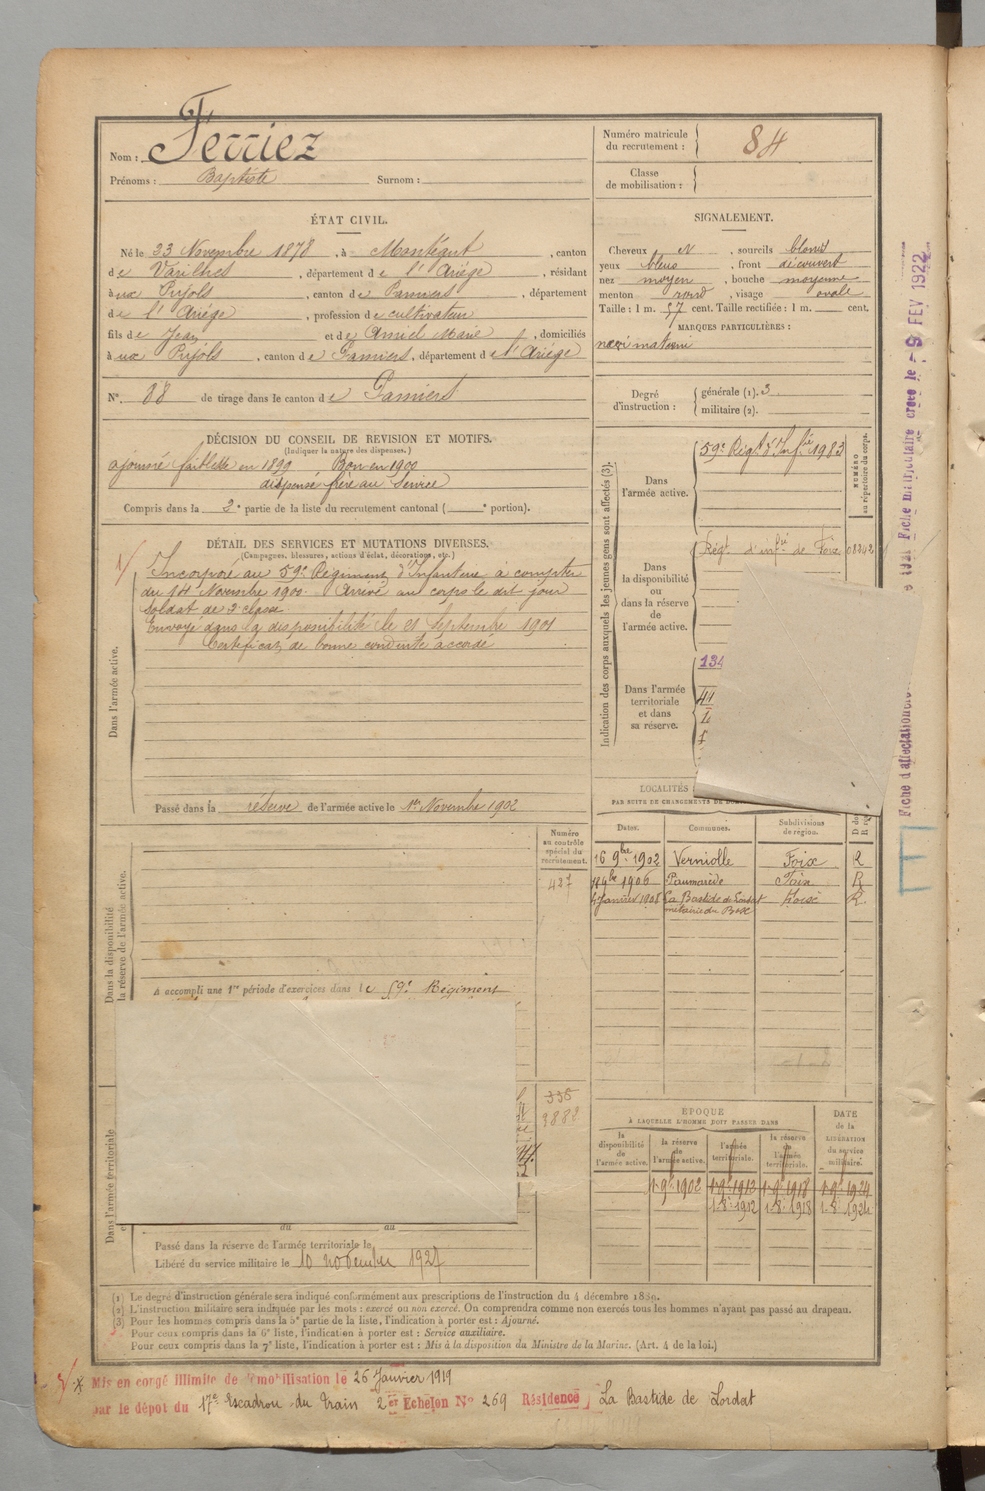 Nom : Ferriez
Prénoms : Baptiste Surnom :
Numéro matricule du recrutement : 84
Classe de mobilisation :
ÉTAT CIVIL.
Né le 23 Novembre 1878, à Montégut, canton
de Varilhes, département de l'Ariège, résidant
à ux Pujols, canton de Pamiers, département
de l'Ariège, profession de cultivateur
fils de Jean et de Amiel Marie, domiciliés
à ux Pujols, canton de Pamiers, département de l'Ariège
N°. 88 de tirage dans le canton de Pamiers
SIGNALEMENT.
Cheveux N, sourcils blonds
yeux bleus, front découvert
nez moyen, bouche moyenne
menton rond, visage ovale
Taille : 1 m. 57 cent. Taille rectifiée : 1 m. cent.
MARQUES PARTICULIÈRES :
nævi materni
Degré d'instruction : générale (1). 3
militaire (2).
DÉCISION DU CONSEIL DE REVISION ET MOTIFS.
(Indiquer la nature des dispenses.)
ajourné faiblesse en 1899 Bon en 1900
dispensé frère au Service
Compris dans la 2e partie de la liste du recrutement cantonal ( e portion).
DÉTAIL DES SERVICES ET MUTATIONS DIVERSES.
(Campagnes, blessures, actions d'éclat, décorations, etc.)
Dans l'armée active.
Incorporé au 59e Régiment d'Infanterie à compter
du 14 Novembre 1900. Arrivé au corps le dit jour
Soldat de 2e classe
Envoyé dans la disponibilité le 21 Septembre 1901
Certificat de bonne conduite accordé
Passé dans la réserve de l'armée active le 1er Novembre 1902
Indication des corps auxquels les jeunes gens sont affectés (3).
Dans l'armée active.
59e Régt d'Infie 1983
NUMÉRO au répertoire du corps.
Dans la disponibilité ou dans la réserve de l'armée active.
Régt d'infie de Foix 08242
Dans l'armée territoriale et dans sa réserve.
134
LOCALITÉS
PAR SUITE DE CHANGEMENTS DE
Dates. Communes. Subdivisions de région.
16 9bre 1902 Verniolle Foix R
18 9bre 1906 R
4 Janvier 1908 La Bastide de Lordat Foix R.
métairie du Bosc
Numéro au contrôle spécial du recrutement.
437
Dans la disponibilité
la réserve de l'armée active.
A accompli une 1re période d'exercices dans le 59e Régiment
336
Dans l'armée territoriale
du au
Passé dans la réserve de l'armée territoriale le
Libéré du service militaire le 10 novembre 1927
ÉPOQUE
À LAQUELLE L'HOMME DOIT PASSER DANS
la disponibilité de l'armée active.
la réserve de l'armée active.
l'armée territoriale.
la réserve de l'armée territoriale.
DATE de la LIBÉRATION du service militaire.
1-9e-1902 1-9e-1912 1-9e-1918 1-9e-1924
1-8e-1912 1-8e-1918 1-8e-1924
(1) Le degré d'instruction générale sera indiqué conformément aux prescriptions de l'instruction du 4 décembre 1889.
(2) L'instruction militaire sera indiquée par les mots : exercé ou non exercé. On comprendra comme non exercés tous les hommes n'ayant pas passé au drapeau.
(3) Pour les hommes compris dans la 5e partie de la liste, l'indication à porter est : Ajourné.
Pour ceux compris dans la 6e liste, l'indication à porter est : Service auxiliaire.
Pour ceux compris dans la 7e liste, l'indication à porter est : Mis à la disposition du Ministre de la Marine. (Art. 4 de la loi.)
Mis en congé illimité de démobilisation le 26 Janvier 1919
par le dépôt du 17e Escadron du train 2er Echelon N° 269 Résidence La Bastide de Lordat
Fiche matriculaire créée le - 9 FEV 1922
Fiche d'affectation